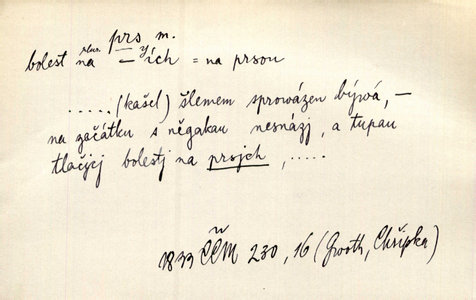 prs m.
bolest na plur. – ých = na prsou
..... (kašel) šlemem sprowázen býwá, –
na začátku s něgakau nesnázj, a tupau
tlačjcj bolestj na prsjch, .....
1833 ČČM 230, 16 (Groth, Chřipka)